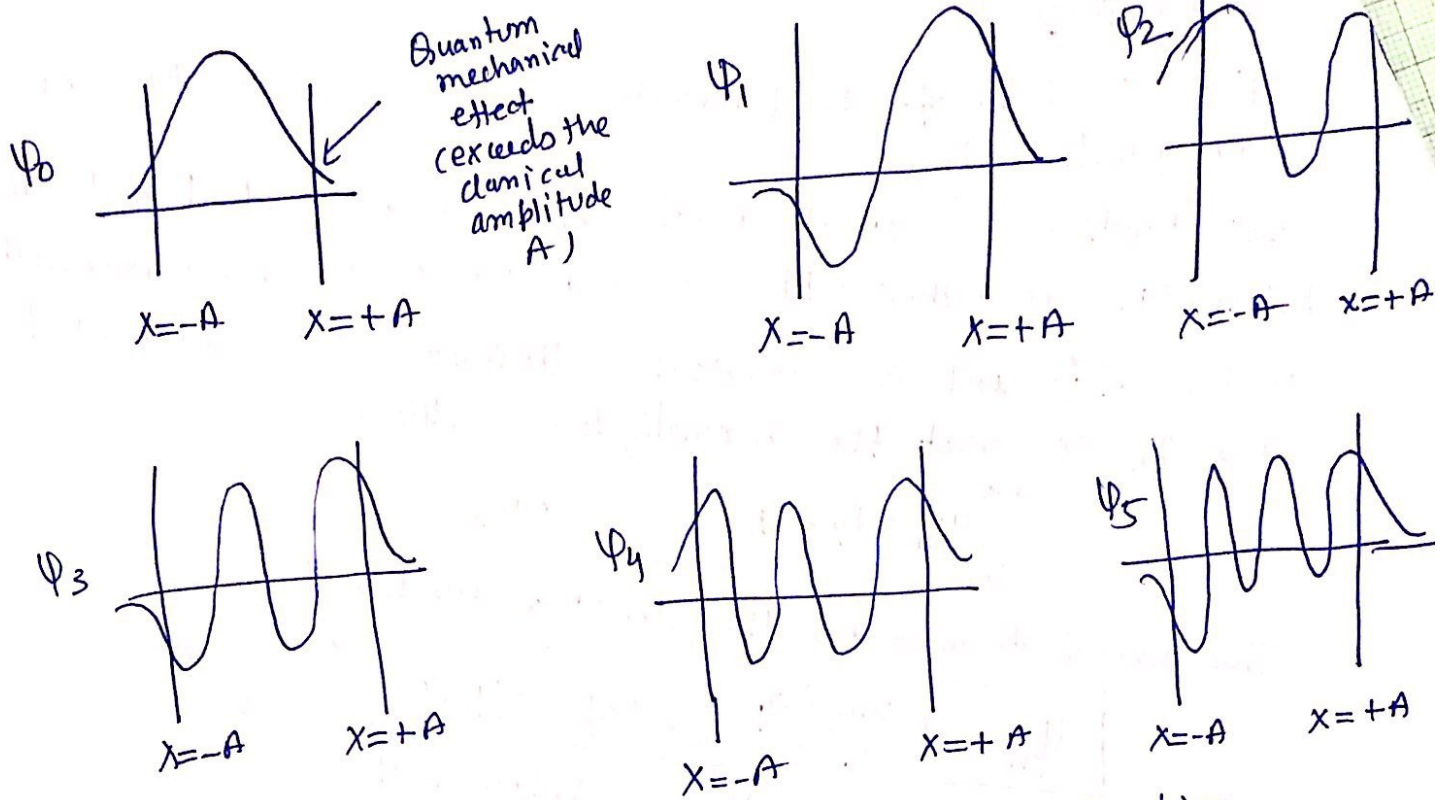 ψ0
Quantum
mechanical
effect
(exceeds the
classical
amplitude
A)
X=-A
X=+A
ψ1
X=-A
X=+A
ψ2
X=-A
X=+A
ψ3
X=-A
X=+A
ψ4
X=-A
X=+A
ψ5
X=-A
X=+A